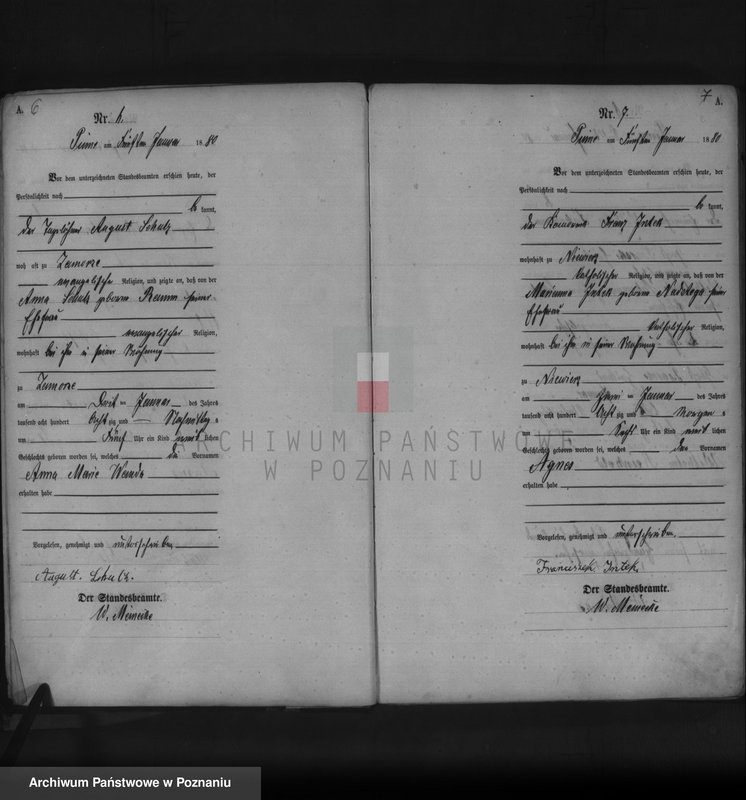 A. 6
Nr. 6.
Pinne am fünften Januar 18 80
Vor dem unterzeichneten Standesbeamten erschien heute, der
Persönlichkeit nach
be kannt,
der Tagelöhner August Schulz
woh aft zu Zamorze
evangelische Religion, und zeigte an, daß von der
Anna Schulz geborenen seiner
Ehefrau
evangelischer Religion,
wohnhaft bei ihm in seiner Wohnung
zu Zamorze
am Januar des Jahres
tausend acht hundert acht zig und Nachmittag s
um fünf Uhr ein Kind weib lichen
Geschlechts geboren worden sei, welches die Vornamen
Anna Marie Wanda
erhalten habe
Vorgelesen, genehmigt und unterschrieben
August. Schulz.
Der Standesbeamte.
W. Meinecke
7 A.
Nr. 7.
Pinne am fünften Januar 18 80
Vor dem unterzeichneten Standesbeamten erschien heute, der
Persönlichkeit nach
be kannt,
der Franz Intek
wohnhaft zu Niewierz
katholischer Religion, und zeigte an, daß von der
Marianna Intek geborenen seiner
Ehefrau
katholischer Religion,
wohnhaft bei ihm in seiner Wohnung
zu Niewierz
am Januar des Jahres
tausend acht hundert acht zig und Morgen s
um sechs Uhr ein Kind weib lichen
Geschlechts geboren worden sei, welches den Vornamen
Agnes
erhalten habe
Vorgelesen, genehmigt und unterschrieben.
Franciszek Intek.
Der Standesbeamte.
W. Meinecke
ARCHIWUM PAŃSTWOWE
W POZNANIU
Archiwum Państwowe w Poznaniu